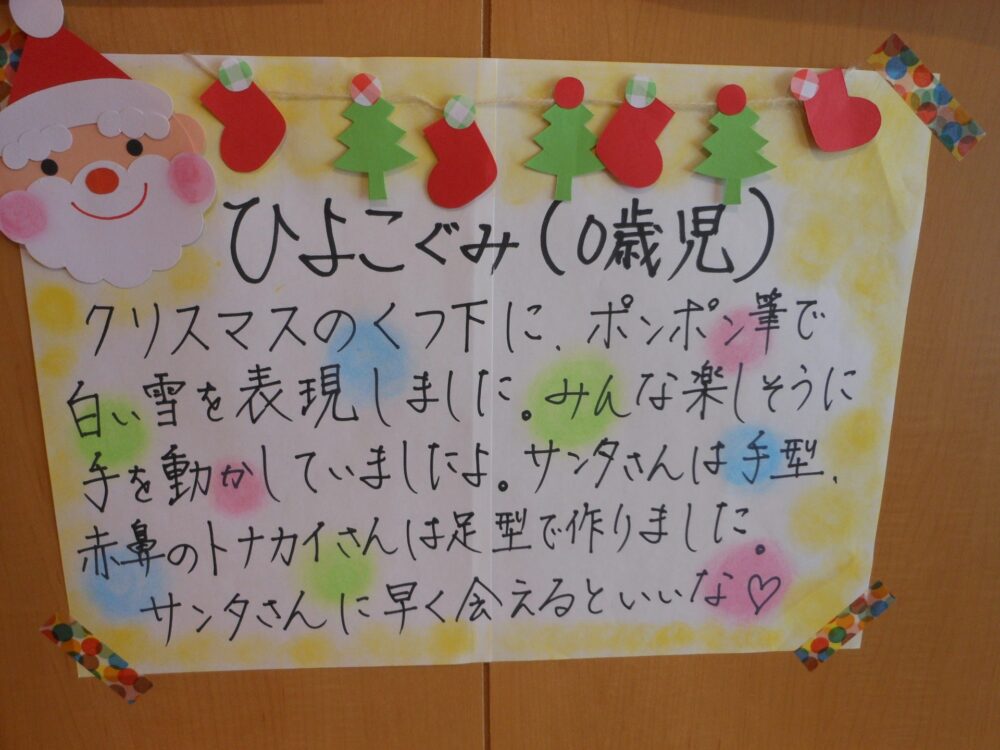 ひよこぐみ(0歳児)
クリスマスのくつ下に、ポンポン筆で
白い雪を表現しました。みんな楽しそうに
手を動かしていましたよ。サンタさんは手型、
赤鼻のトナカイさんは足型で作りました。
サンタさんに早く会えるといいな♡